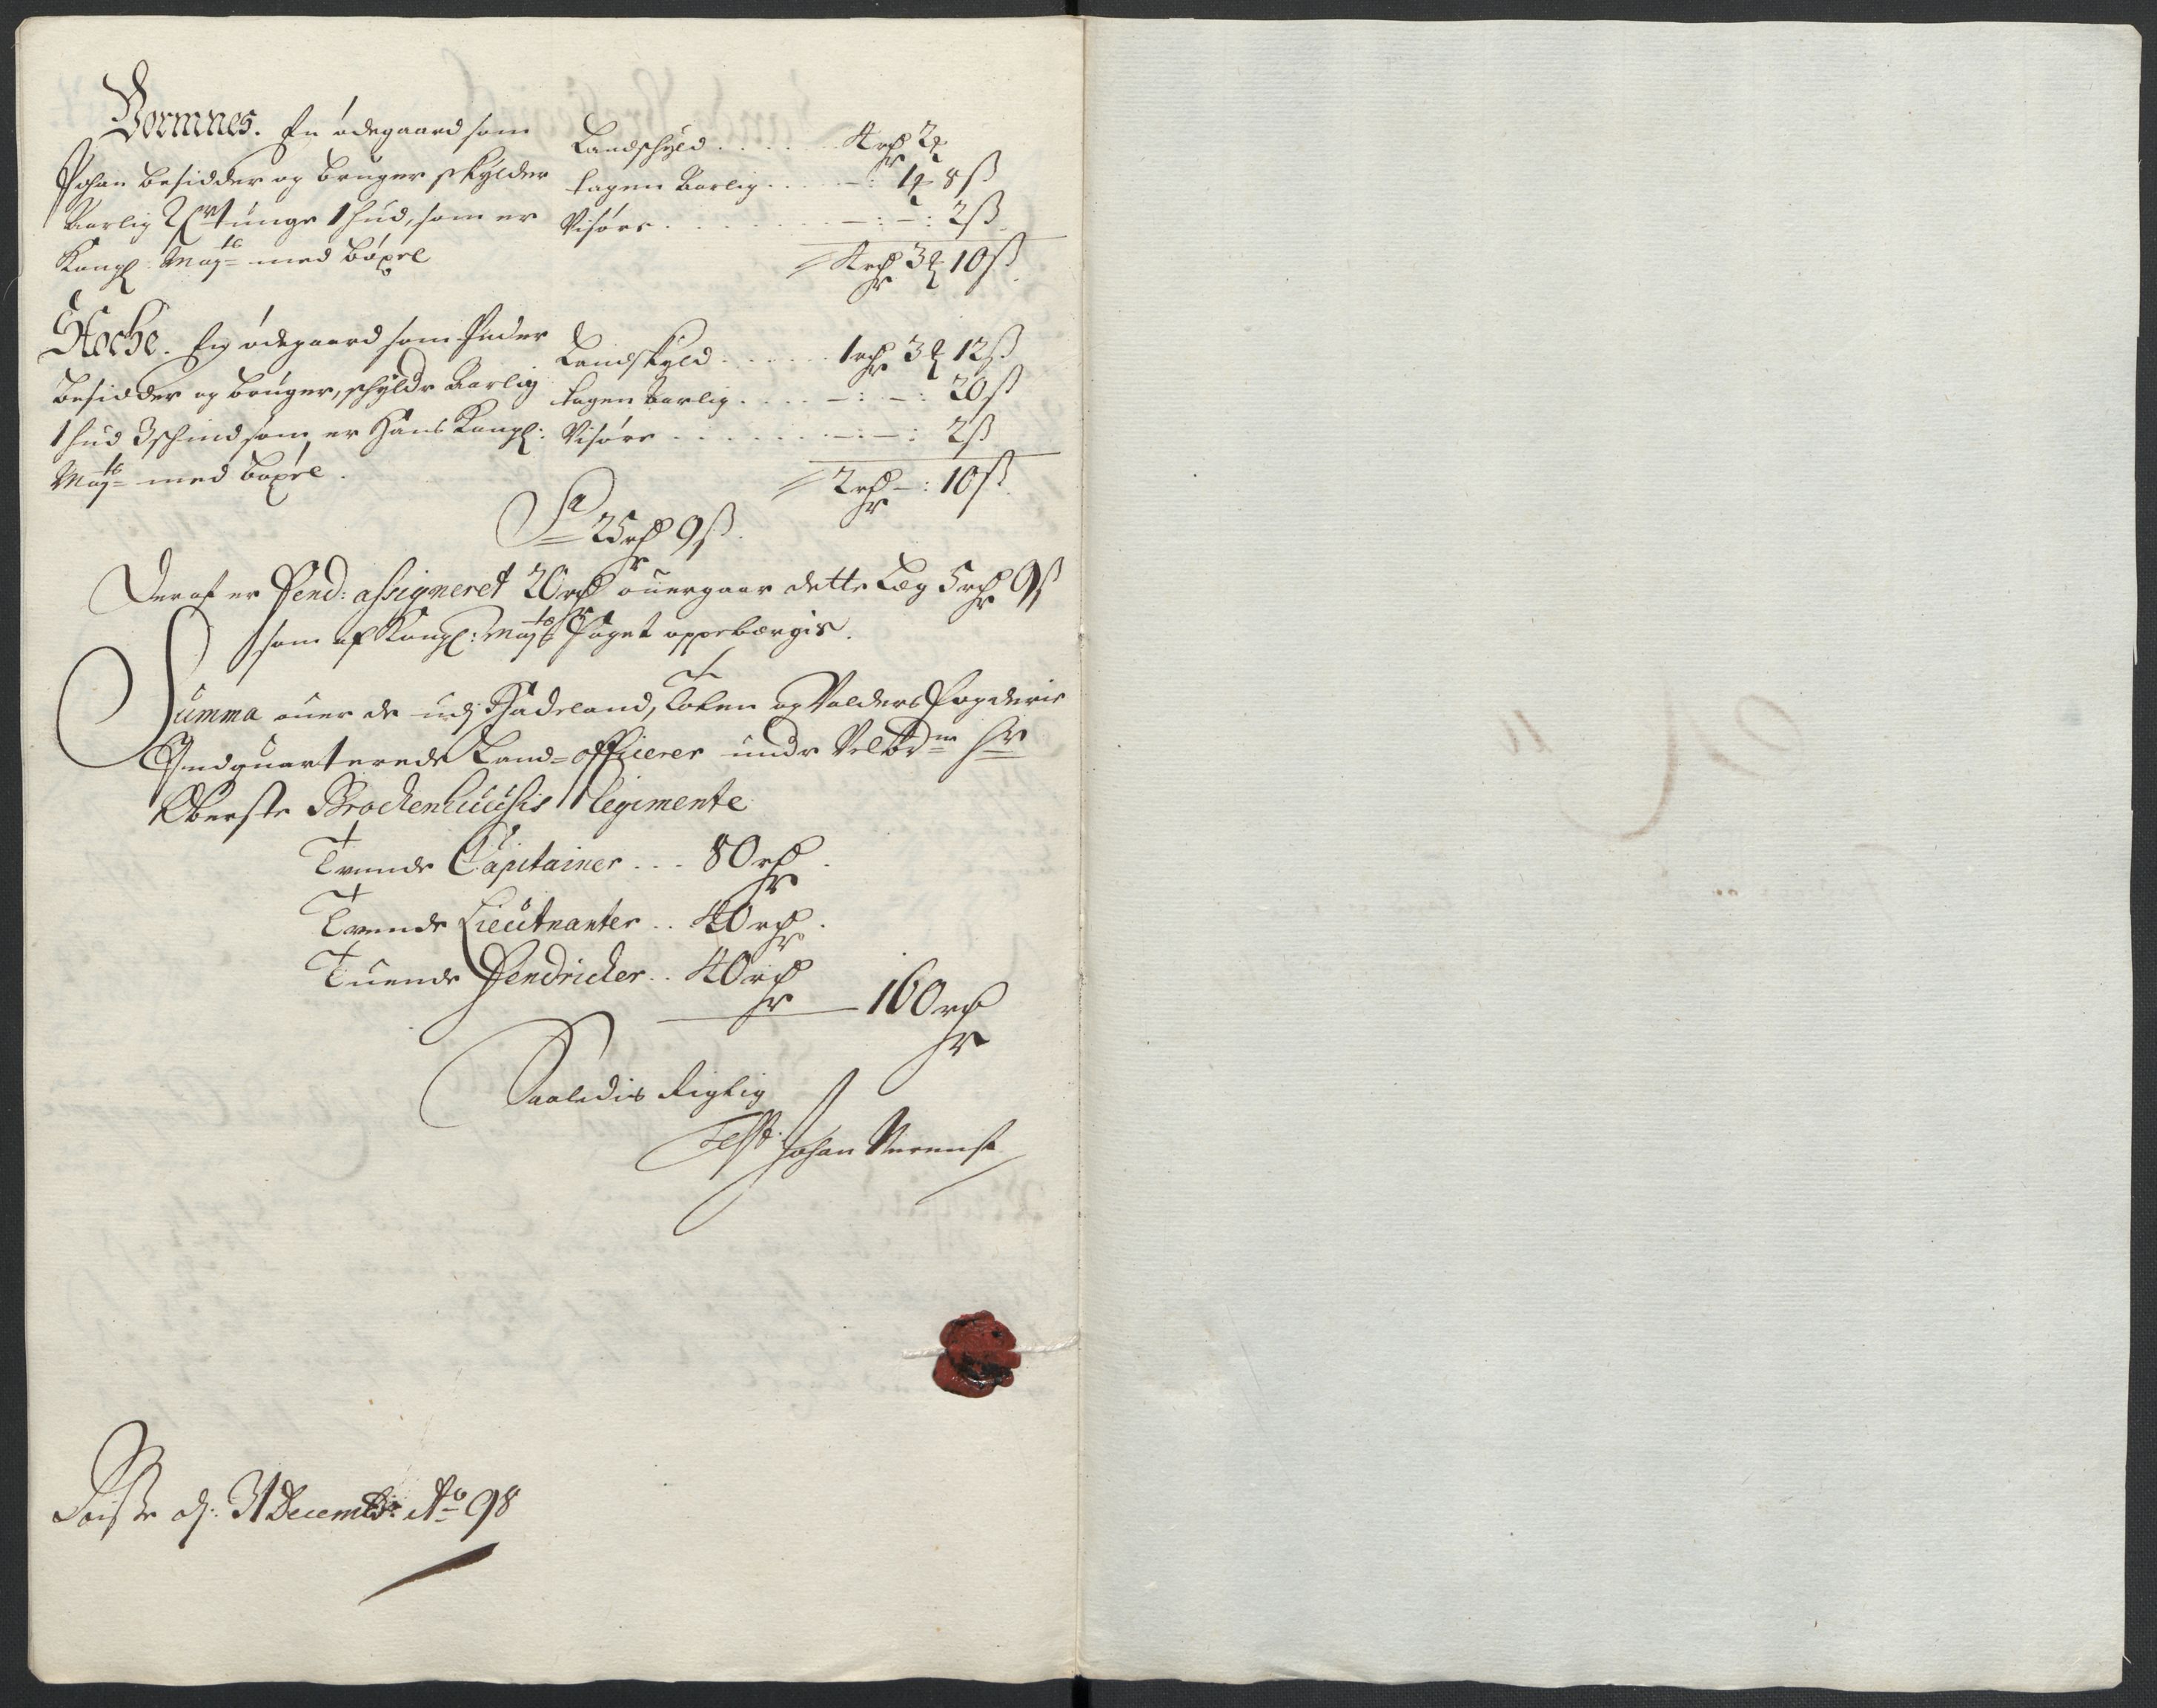 Vormnes. En ødegaard som
Johan besidder og bruger skylder
Aarlig 2 tunge 1 hud, som er
Kongl: May^te med bøxel
Landschyld . . . . . . 4 rdr 2 ort
tagen Aarlig . . . . -: 1 ort 8 ß
Visøre . . . . . . -:-: 2 ß
4 rdr 3 ort 10 ß
En ødegaard som Peder
besidder og bruger, schyldr Aarlig
1 hud 3 schind som er Hans Kongl:
May^te med bøxel.
Landskyld . . . . . . 1 rdr 3 ort 12 ß
tagen Aarlig . . . . -:-: 20 ß
Visøre . . . . . . -:-: 2 ß
2 rdr -: 10 ß
S^a 25 rdr 9 ß.
Deraf er Fend: assigneret 20 rdr ouergaar dette Læg 5 rdr 9 ß
som af Kongl: May^ts Foget oppebærgis.
Summa ouer de udj Hadeland, Toten og Valders Fogderie
Indquarterede Land-officerer undr Velb^dne Hr
Oberste Brockenhuusis Regimente
Tvende Capitainer . . . 80 rdr.
Tvende Lieutnanter . . 40 rdr.
Tuende Fendricker . . 40 rdr
160 rdr
Saaledis Rigtig
Test: Johan
d: 31 Decembr: A^o 98